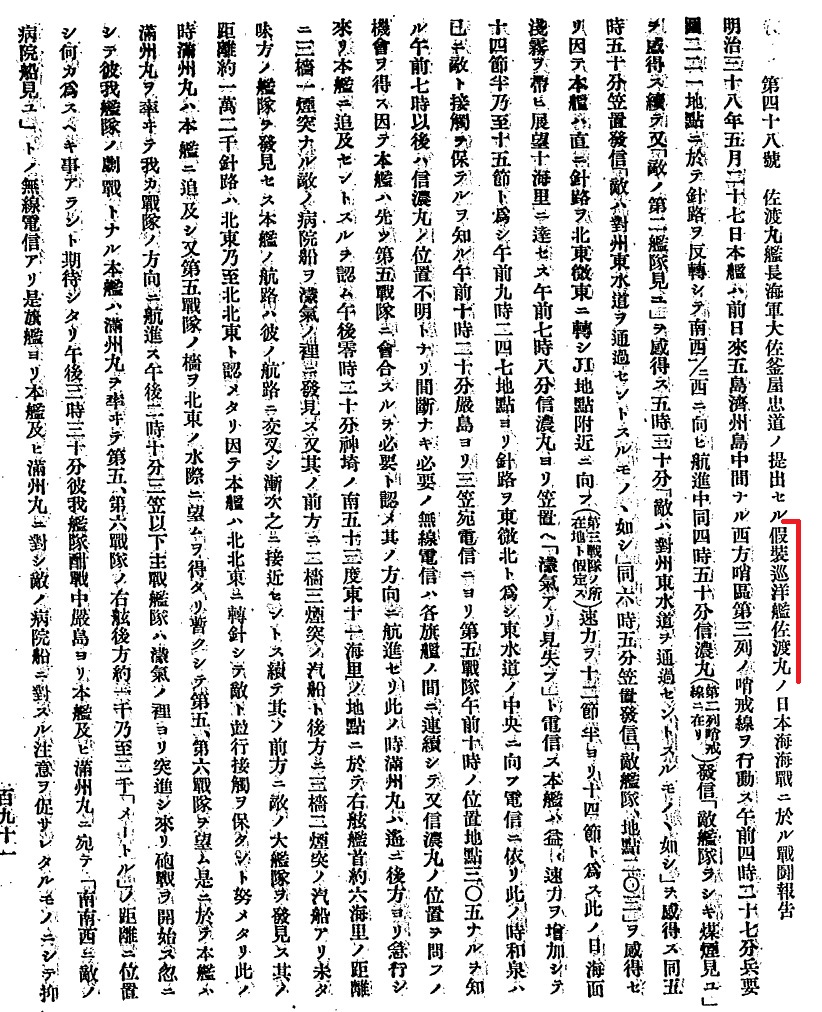 第四十八號　佐渡丸艦長海軍大佐釜屋忠道ノ提出セル假裝巡洋艦佐渡丸ノ日本海海戰ニ於ル戰鬪報告
明治三十八年五月二十七日本艦ハ前日來五島濟州島中間ナル西方哨區第三列ノ哨戒線ヲ行動ス午前四時二十七分兵要
圖二二一地點ニ於テ針路ヲ反轉シテ南西/二西ニ向ヒ航進中同四時五十分信濃丸(第二列哨戒線ニ在リ)發信「敵艦隊ラシキ煤煙見ユ」
ヲ感得ス續テ又「敵ノ第二艦隊見ユ」ヲ感得ス五時三十分「敵ハ對州東水道ヲ通過セントスルモノヽ如シ」ヲ感得ス同五
時五十分笠置發信「敵ハ對州東水道ヲ通過セントスルモノヽ如シ」同六時五分笠置發信「敵艦隊、地點二〇三」ヲ感得セ
リ因テ本艦ハ直ニ針路ヲ北東微東ニ轉シJI地點附近ニ向フ(第三戰隊ノ所在地ト假定ス)速力ヲ十二節半ヨリ十四節ト爲ス此ノ日海面
淺霧ヲ帶ヒ展望十海里ニ達セス午前七時八分信濃丸ヨリ笠置ヘ「濛氣アリ見失フ」ト電信ス本艦ハ益〻速力ヲ增加シテ
十四節半乃至十五節ト爲シ午前九時二四七地點ヨリ針路ヲ東微北ト爲シ東水道ノ中央ニ向フ電信ニ依リ此ノ時和泉ハ
已ニ敵ト接觸ヲ保テルヲ知ル午前十時二十分嚴島ヨリ三笠宛電信ニヨリ第五戰隊午前十時ノ位置地點三〇五ナルヲ知
ル午前七時以後ハ信濃丸ノ位置不明トナリ間斷ナキ必要ノ無線電信ハ各旗艦ノ間ニ連續シテ又信濃丸ノ位置ヲ問フノ
機會ヲ得ス因テ本艦ハ先ツ第五戰隊ニ會合スルヲ必要ト認メ其ノ方向ニ航進セリ此ノ時滿州丸ハ遙ニ後方ヨリ急行シ
來リ本艦ニ追及セントスルヲ認ム午後零時二十分神埼ノ南五十三度東十一海里ノ地點ニ於テ右舷艦首約六海里ノ距離
ニ三檣一煙突ナル敵ノ病院船ヲ濛氣ノ裡ニ發見ス又其ノ前方ニ二檣三煙突ノ汽船ト後方ニ三檣二煙突ノ汽船アリ未タ
味方ノ艦隊ヲ發見セス本艦ノ航路ハ彼ノ航路ニ交叉シ漸次之ニ接近セントス續テ其ノ前方ニ敵ノ大艦隊ヲ發見ス其ノ
距離約一萬二千針路ハ北東乃至北北東ト認メタリ因テ本艦ハ北北東ニ轉針シテ敵ト竝行接觸ヲ保タント努メタリ此ノ
時滿州丸ハ本艦ニ追及シ又第五戰隊ノ檣ヲ北東ノ水際ニ望ムヲ得タリ暫クシテ第五、第六戰隊ヲ望ム是ニ於テ本艦ハ
滿州丸ヲ率ヰテ我カ戰隊ノ方向ニ航進ス午後二時十分三笠以下主戰艦隊ハ濛氣ノ裡ヨリ突進シ來リ砲戰ヲ開始ス忽ニ
シテ彼我艦隊ノ劇戰トナル本艦ハ滿州丸ヲ率ヰテ第五、第六戰隊ノ右舷後方約一千乃至二千「メートル」ノ距離ニ位置
シ何カ爲スヘキ事アラント期待シタリ午後三時三十分彼我艦隊酣戰中嚴島ヨリ本艦及ヒ滿州丸ニ宛テ「南南西ニ敵ノ
病院船見ユ」トノ無線電信アリ是旗艦ヨリ本艦及ヒ滿州丸ニ對シ敵ノ病院船ニ對スル注意ヲ促サレタルモノニシテ抑
百九十一